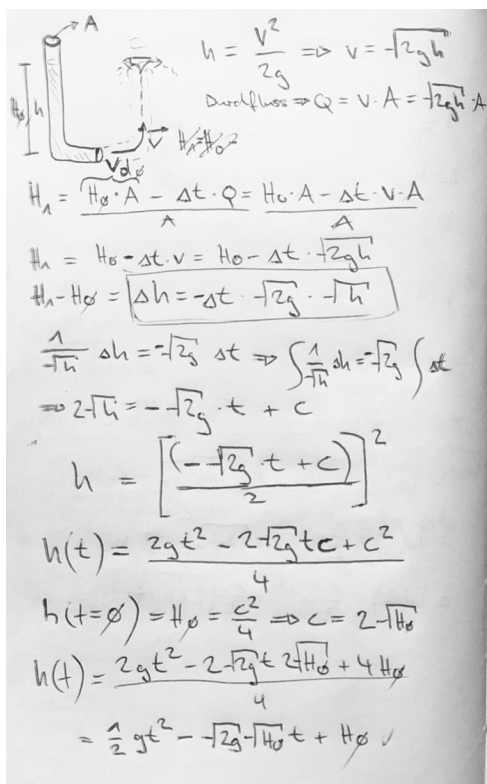 A
h = v²/2g ⇒ v = √2gh
Durchfluss ⇒ Q = v · A = √2gh · A
H₀ h
V₀ v H₁=H₀-
H₁ = (H₀ · A - Δt · Q)/A = (H₀ · A - Δt · v · A)/A
H₁ = H₀ - Δt · v = H₀ - Δt · √2gh
H₁ - H₀ = Δh = -Δt · √2g · √h
1/√h Δh = -√2g Δt ⇒ ∫ 1/√h Δh = -√2g ∫ Δt
⇒ 2√h = -√2g · t + c
h = [(-√2g t + c)/2]²
h(t) = (2gt² - 2√2g tc + c²)/4
h(t=0) = H₀ = c²/4 ⇒ c = 2√H₀
h(t) = (2gt² - 2√2g t 2√H₀ + 4H₀)/4
= 1/2 gt² - √2g √H₀ t + H₀ ✓